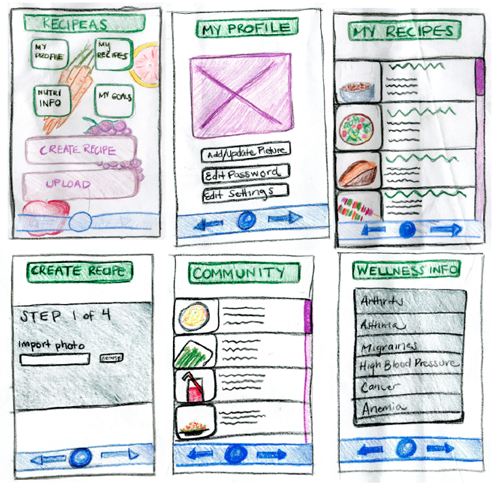 RECIPEAS
MY PROFILE
MY RECIPES
NUTRI INFO
MY GOALS
CREATE RECIPE
UPLOAD
MY PROFILE
Add/Update Picture
Edit Password
Edit Settings
MY RECIPES
CREATE RECIPE
STEP 1 of 4
import photo
COMMUNITY
WELLNESS INFO
Arthritis
Asthma
Migraines
High Blood Pressure
Cancer
Anemia